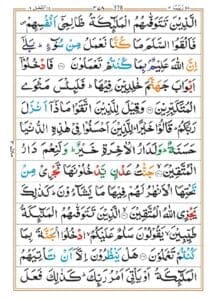 الَّذِيْنَ تَتَوَفّٰىهُمُ الْمَلٰٓئِكَةُ ظَالِمِيْٓ اَنْفُسِهِمْ
فَاَلْقَوُا السَّلَمَ مَا كُنَّا نَعْمَلُ مِنْ سُوْٓءٍ ؕ بَلٰٓى
اِنَّ اللّٰهَ عَلِيْمٌۢ بِمَا كُنْتُمْ تَعْمَلُوْنَ ۝ فَادْخُلُوْٓا
اَبْوَابَ جَهَنَّمَ خٰلِدِيْنَ فِيْهَا ؕ فَلَبِئْسَ مَثْوَى
الْمُتَكَبِّرِيْنَ ۝ وَقِيْلَ لِلَّذِيْنَ اتَّقَوْا مَاذَآ اَنْزَلَ
رَبُّكُمْ ؕ قَالُوْا خَيْرًا ؕ لِلَّذِيْنَ اَحْسَنُوْا فِيْ هٰذِهِ الدُّنْيَا
حَسَنَةٌ ؕ وَلَدَارُ الْاٰخِرَةِ خَيْرٌ ؕ وَلَنِعْمَ دَارُ
الْمُتَّقِيْنَ ۝ جَنّٰتُ عَدْنٍ يَّدْخُلُوْنَهَا تَجْرِيْ مِنْ
تَحْتِهَا الْاَنْهٰرُ لَهُمْ فِيْهَا مَا يَشَآءُوْنَ ؕ كَذٰلِكَ
يَجْزِي اللّٰهُ الْمُتَّقِيْنَ ۝ الَّذِيْنَ تَتَوَفّٰىهُمُ الْمَلٰٓئِكَةُ
طَيِّبِيْنَ ۙ يَقُوْلُوْنَ سَلٰمٌ عَلَيْكُمُ ۙ ادْخُلُوا الْجَنَّةَ بِمَا
كُنْتُمْ تَعْمَلُوْنَ ۝ هَلْ يَنْظُرُوْنَ اِلَّآ اَنْ تَاْتِيَهُمُ
الْمَلٰٓئِكَةُ اَوْ يَاْتِيَ اَمْرُ رَبِّكَ ؕ كَذٰلِكَ فَعَلَ